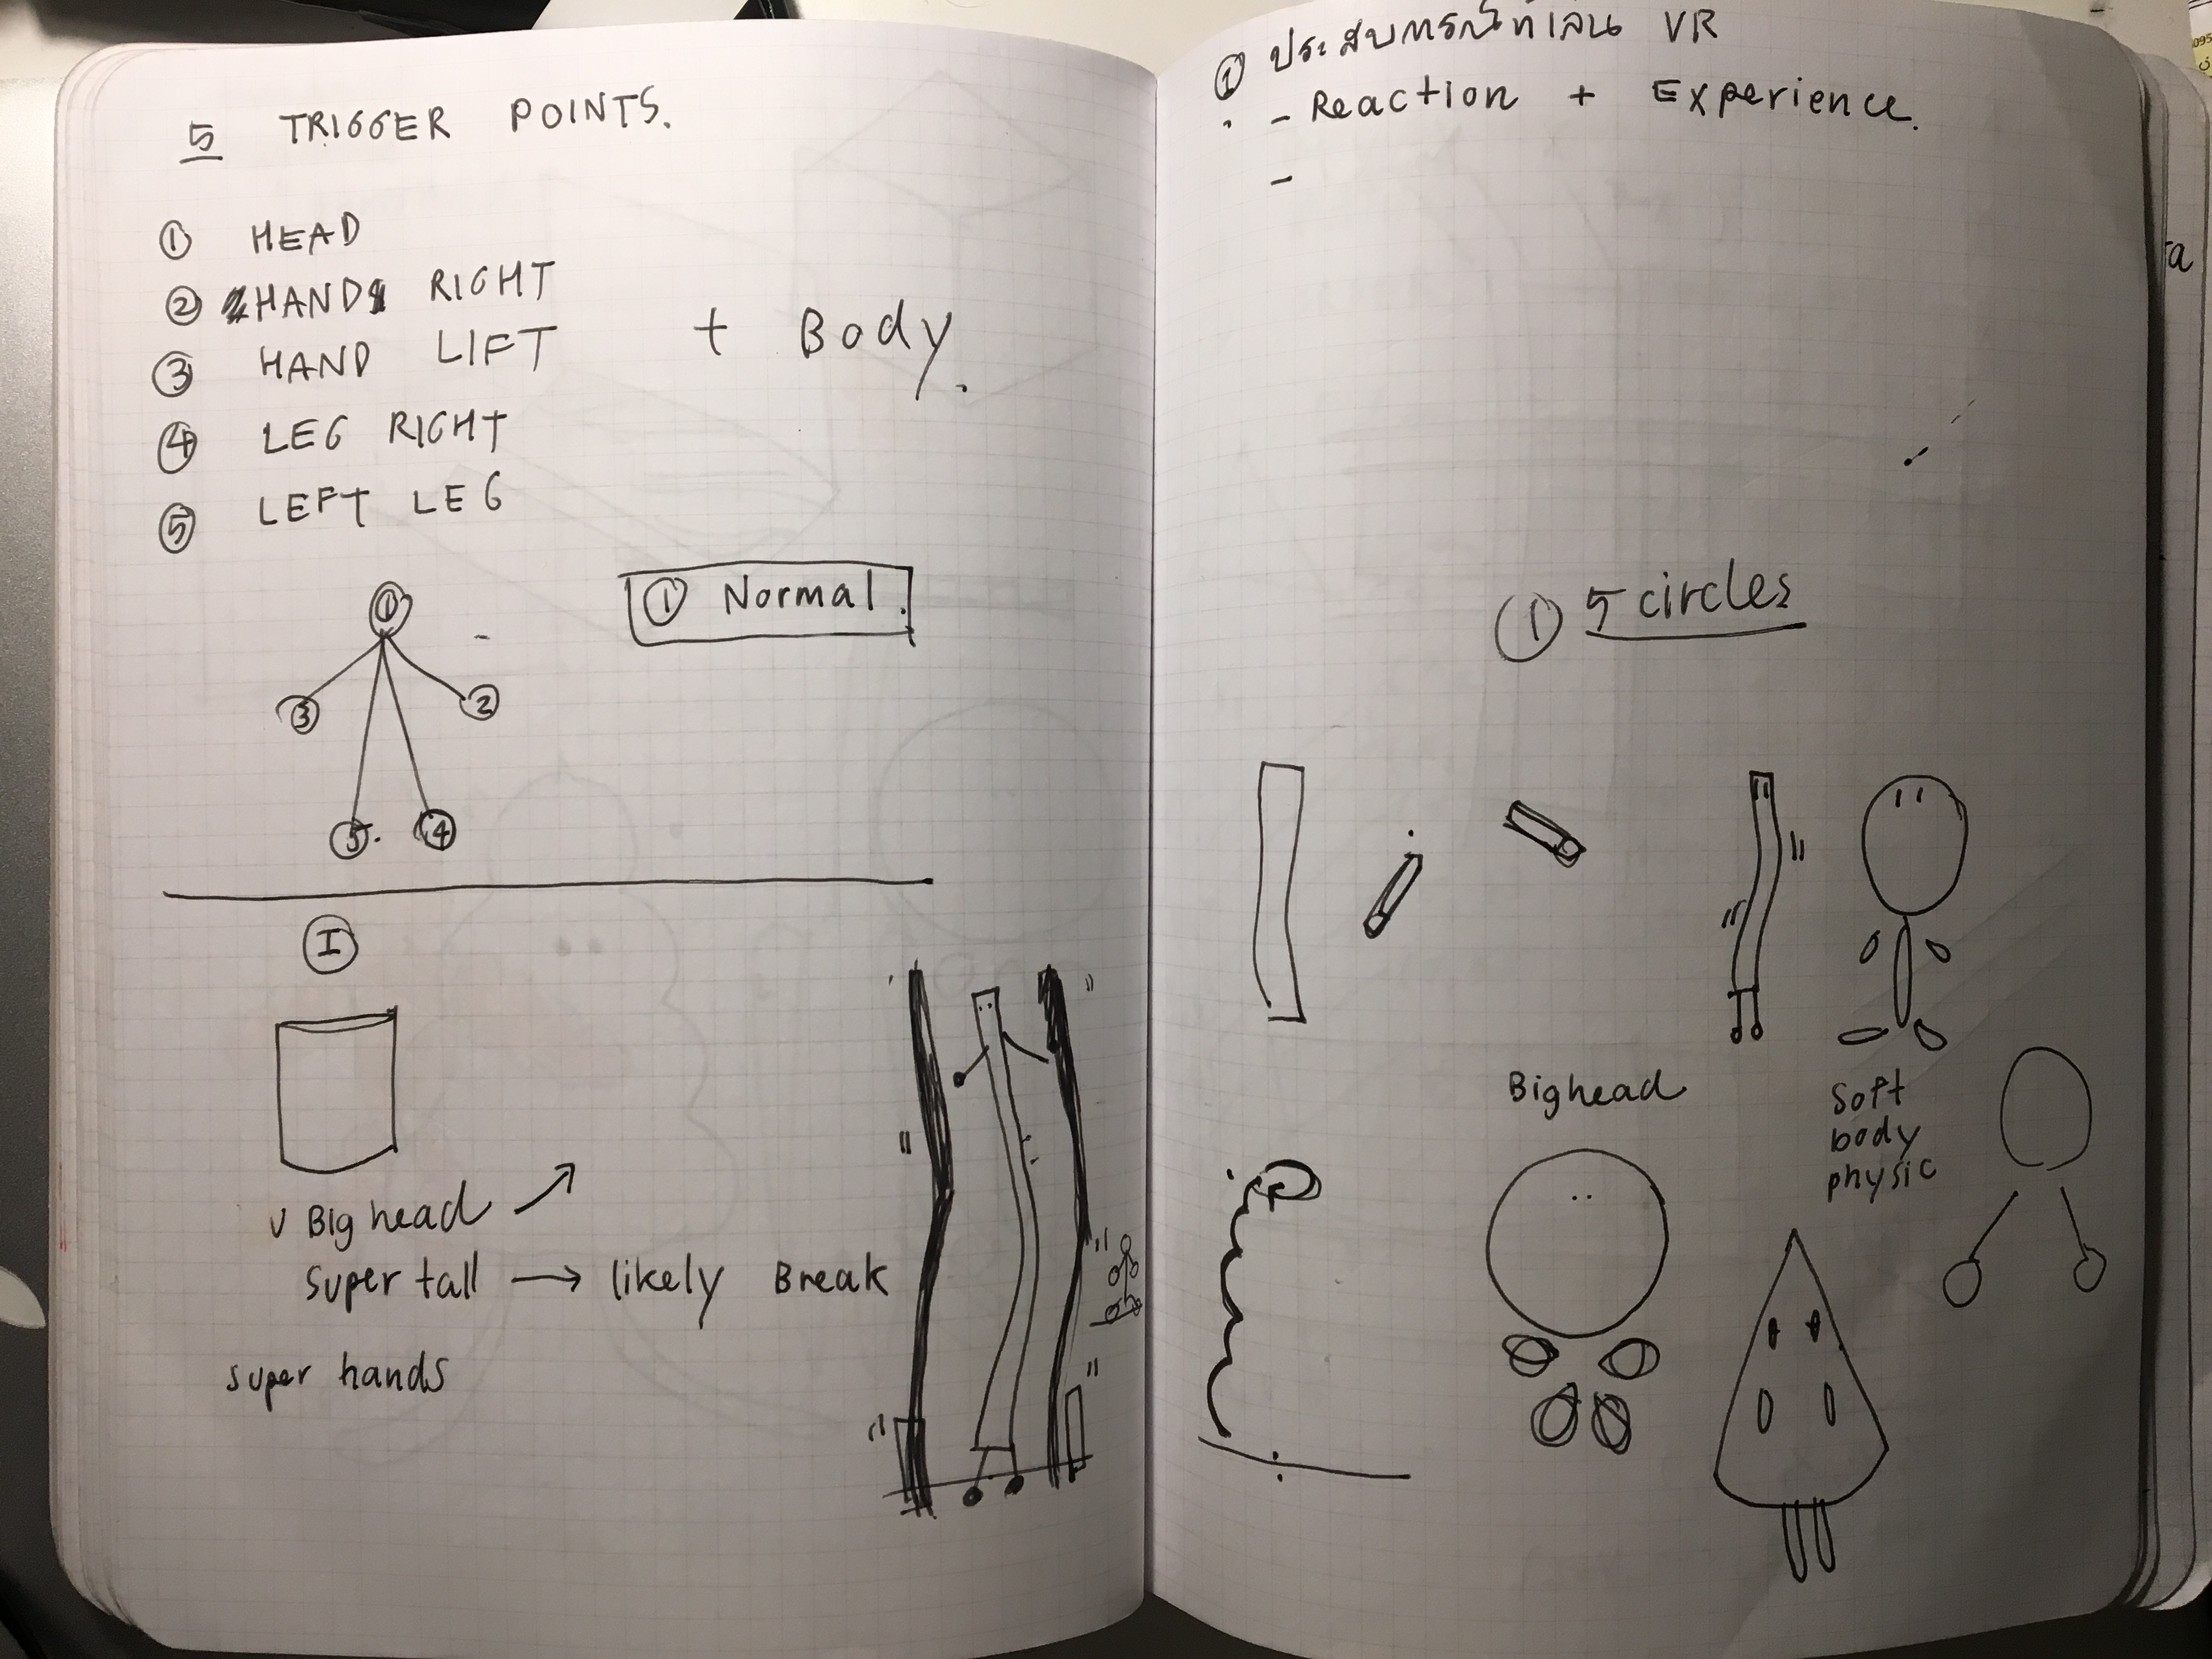 5 TRIGGER POINTS.
① HEAD
② HAND RIGHT
③ HAND LIFT
④ LEG RIGHT
⑤ LEFT LEG
+ Body.
① Normal.
1
3
2
5.
4
I
v Big head
Super tall → likely Break
super hands
① ประสบการณ์ที่เล่น VR
- Reaction + Experience.
-
① 5 circles
Big head
Soft
body
physic